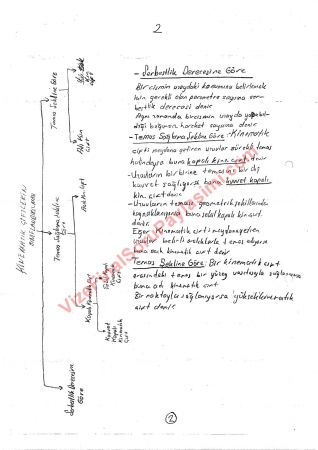 2
- Serbestlik Derecesine Göre
Bir cismin uzaydaki konumunu belirlemek
için gerekli olan parametre sayısına ser-
bestlik derecesi denir
Aynı zamanda bir cismin uzayda yapabil-
diği bağımsız hareket sayısına denir
- Temas Sağlama Şekline Göre: Kinematik
çifti meydana getiren uzuvlar sürekli temas
halindeyse buna kapalı kin. çift denir
- Uzuvların birbirine teması bir dış
kuvvet sağlıyorsa buna kuvvet kapalı
kin. çift denir
- Uzuvların teması geometrik şekillerinden
kaynaklanıyorsa buna şekil kapalı kin çift
denir.
Eğer Kinematik çifti meydana getiren
uzuvlar belirli aralıklarla temas ediyorsa
buna açık kinematik çift denir
Temas Şekline Göre: Bir kinematik çift
arasındaki temas bir yüzey vasıtasıyla sağlanıyorsa
buna adi kinematik çift
Bir noktayla sağlanıyorsa yüksek kinematik
çift denir
KİNEMATİK ÇİFTLERİN
SINIFLANDIRILMASI
Temas Şekline Göre
Yük. Kin. Çift
Adi Kin. Çift
Temas Sağlama Şekline Göre
Açık Kin. Çift
Kapalı Kinematik Çift
Şekil Kapalı Kin. Çift
Kuvvet Kapalı Kinematik Çift
Serbestlik Derecesine Göre
VizeFinalSoruPaylasimi.com
2